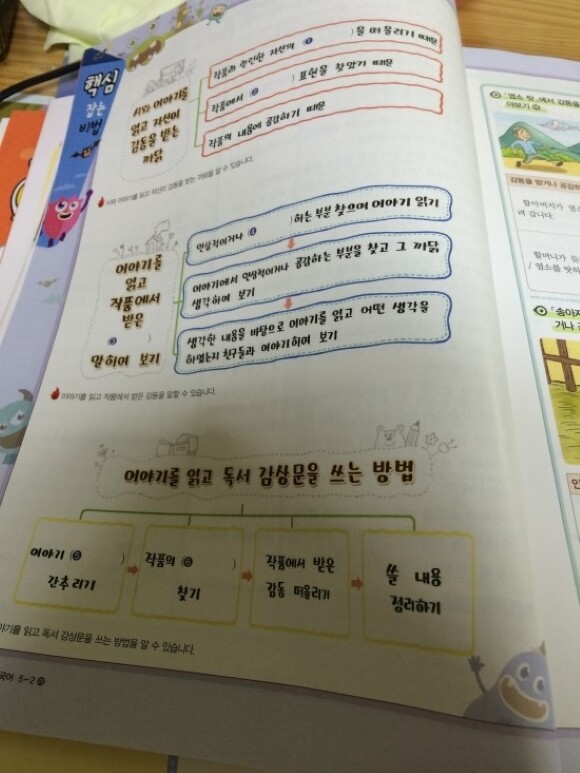 핵심
잡는
비법
시와 이야기를
읽고 자신이
감동을 받는
까닭
작품과 관련한 자신의 ① ( )을 떠올리기 때문
작품에서 ② ( ) 표현을 찾았기 때문
작품의 내용에 공감하기 때문
시와 이야기를 읽고 자신이 감동을 받는 까닭을 알 수 있습니다.
이야기를
읽고
작품에서
받은
③ ( )
말하여 보기
인상적이거나 ④ ( )하는 부분 찾으며 이야기 읽기
이야기에서 인상적이거나 공감하는 부분을 찾고 그 까닭
생각하여 보기
생각한 내용을 바탕으로 이야기를 읽고 어떤 생각을
하였는지 친구들과 이야기하여 보기
이야기를 읽고 작품에서 받은 감동을 말할 수 있습니다.
이야기를 읽고 독서 감상문을 쓰는 방법
이야기 ⑤ ( )
간추리기
작품의 ⑥ ( )
찾기
작품에서 받은
감동 떠올리기
쓸 내용
정리하기
야기를 읽고 독서 감상문을 쓰는 방법을 알 수 있습니다.
국어 5-2